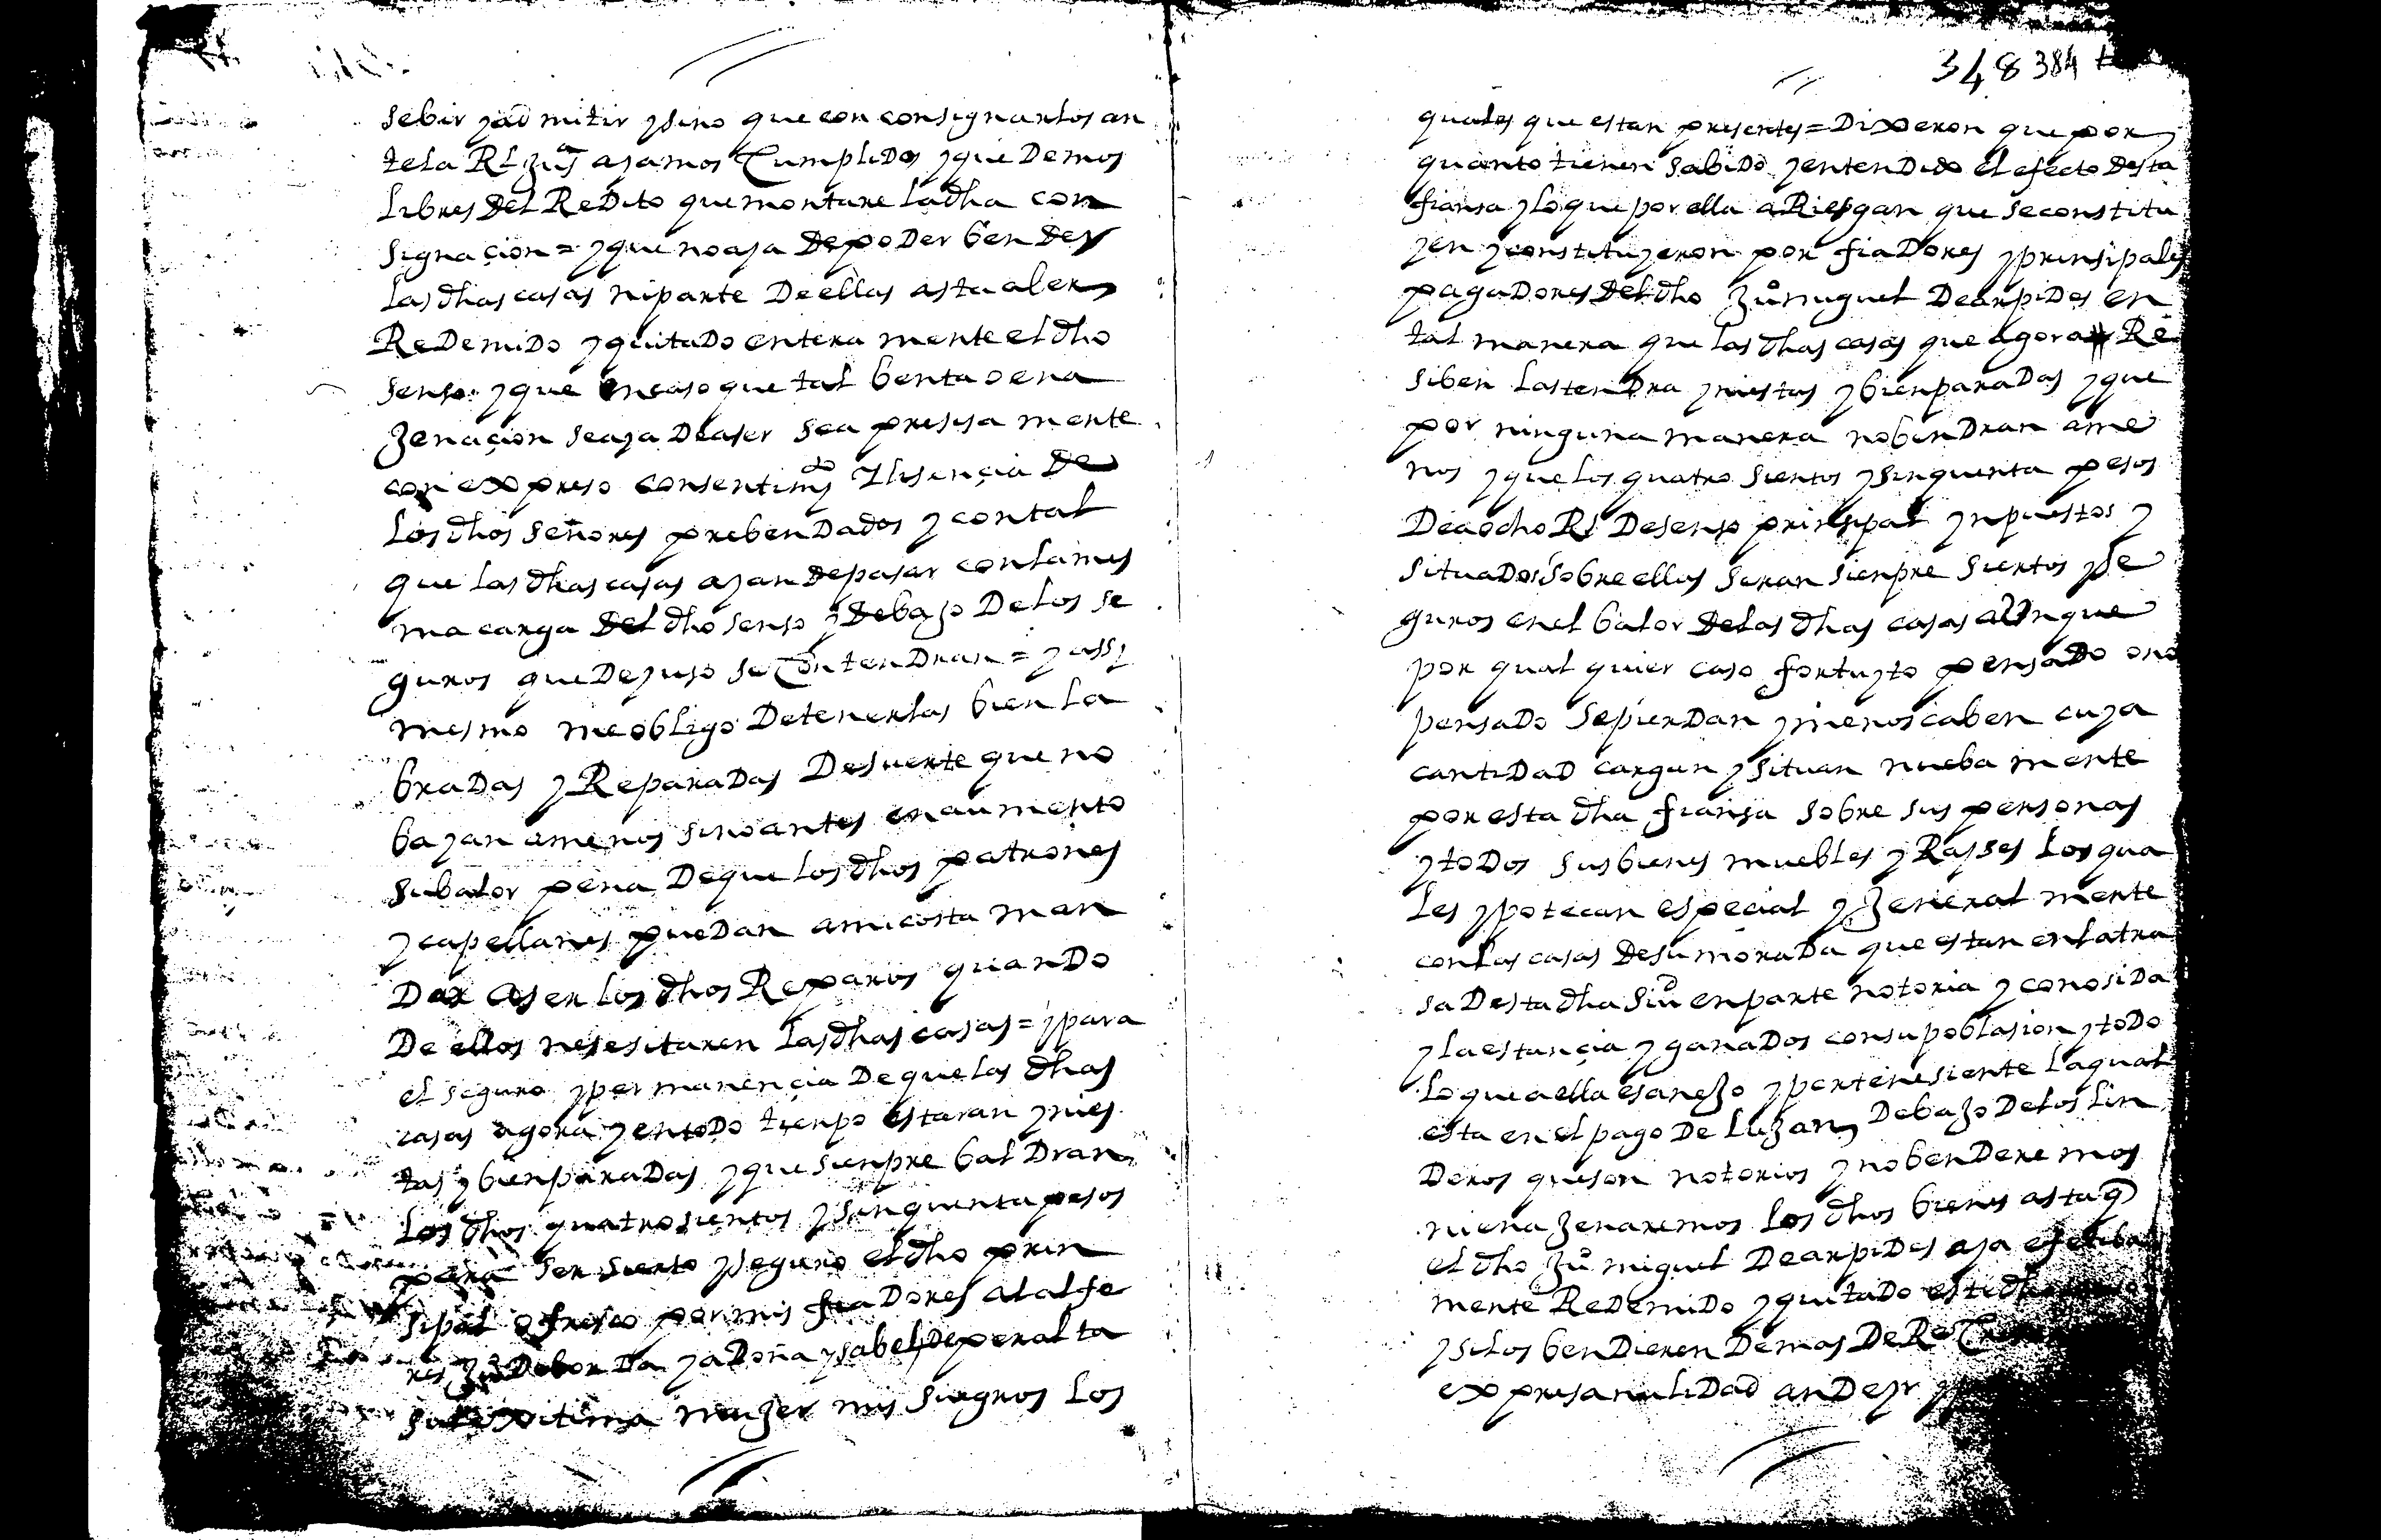 sebir y admitir y sino que con consignarlos an
te la Rl Jusª ayamos Cumplido y queDemos
Libres Del ReDito que montare La dha con
signaçion = y que no aya De poDer benDer
Las dhas casas ni parte De ellas asta aber
ReDemiDo y quitaDo entera mente el dho
senso y que en caso que tal benta o ena
Jenaçion se aya De aser sea presisa mente
con expreso consentimyº Y lisençia De
Los dhos señores prebenDados y con tal
que las dhas casas ayan De pasar con la mes
ma carga Del dho senso y Debajo De los se
guros que De yuso se ContenDran = y assy
mesmo me obligo De tenerlas bien la
braDas y ReparaDas De suerte que no
bayan a menos sino antes en aumento
su balor pena De que Los dhos patrones
y capellanes pueDan a mi costa man
Dar aser los dhos Reparos quanDo
De ellos nesesitaren Las dhas casas = y para
el seguro y permanençia De que las dhas
casas agora y en toDo tienpo estaran ynies
tas y bien paraDas y que sienpre balDran
Los dhos quatrosientos y sinquenta pesos
para ser sierto y seguro el dho prin
sipal ofresco por mis fiaDores al alfe
res Juº De borDa y a Doña ysabel De peralta
su lexitima mujer mis suegros Los
348 384
quales que estan presentes = Dixeron que por
quanto tienen sabiDo y entenDido el efecto Desta
fiansa y lo que por ella aRiesgan que se constitu
yen y constituyeron por fiaDores y prinsipales
pagaDores Del dho Juº miguel De arpiDes en
tal manera que las dhas casas que agora Re
siben las tenDra yniestas y bien paraDas y que
por ninguna manera no benDran a me
nos y que los quatro sientos y sinquenta pesos
De a ocho Rs De senso prinsipal ynpuestos y
situaDos sobre ellas seran sienpre siertos y se
guros en el balor De las dhas casas aUnque
por qual quier caso fortuyto pensaDo o no
pensaDo se pierDan y menoscaben cuya
cantiDaD cargan y situan nueba mente
por esta dha fiansa sobre sus personas
y toDos sus bienes muebles y Rayses Los qua
les ypotecan especial y Jeneral mente
con las casas De su moraDa que estan en la tra
sa Desta dha Siuᵈ en parte notoria y conosiDa
y la estançia y ganaDos con su poblasion y toDo
Lo que a ella es anejo y pertenesiente La qual
esta en el pago De Lujan Debajo De los Lin
Deros que son notorios y no benDeremos
ni enaJenaremos Los dhos bienes asta q̃
el dho Juº miguel De arpiDes aya efetiba
mente ReDemiDo y quitaDo este dho
y si los benDieren Demas De
expresa nuliDaD an De yr